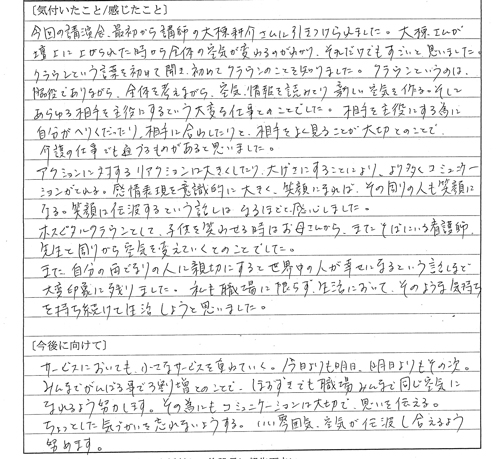 [気付いたこと/感じたこと]
今回の講習会、最初から講師の大棟耕介さんに引きつけられました。大棟さんが
壇上に上がられた時から全体の空気が変わるのがわかり、それだけでもすごいと思いました。
クラウンという言葉を初めて聞き、初めてクラウンのことを知りました。クラウンというのは、
脇役でありながら、全体を考えながら、空気、情報を読みとり新しい空気を作る。そして
あらゆる相手を主役にするという大変な仕事とのことでした。相手を主役にする為に
自分がへりくだったり、相手に合わしたりと、相手をよく見ることが大切とのことで、
介護の仕事でも通づるものがあると思いました。
アクションに対するリアクションは大きくしたり、大げさにすることにより、より多くコミュニケー
ションがとれる。感情表現を意識的に大きく、笑顔になれば、その周りの人も笑顔に
なる。笑顔は伝波するという話しはなるほどと感心しました。
ホスピタルクラウンとして、子供を笑わせる時はお母さんから、またそばにいる看護師、
先生と周りから空気を変えていくとのことでした。
また、自分の両どなりの人に親切にすると世界中の人が幸せになるという話しなど
大変印象に残りました。私も職場に限らず、生活において、そのような気持ち
を持ち続けて生活しようと思いました。
[今後に向けて]
サービスにおいても、小さなサービスを重ねていく。今日よりも明日、明日よりもその次。
みんなでがんばる事で3割増とのことで、ほおずきでも職場みんなで同じ空気に
なれるよう努力します。その為にもコミュニケーションは大切で、思いを伝える。
ちょっとした気づかいを忘れないようする。いい雰囲気、空気が伝波し合えるよう
努めます。